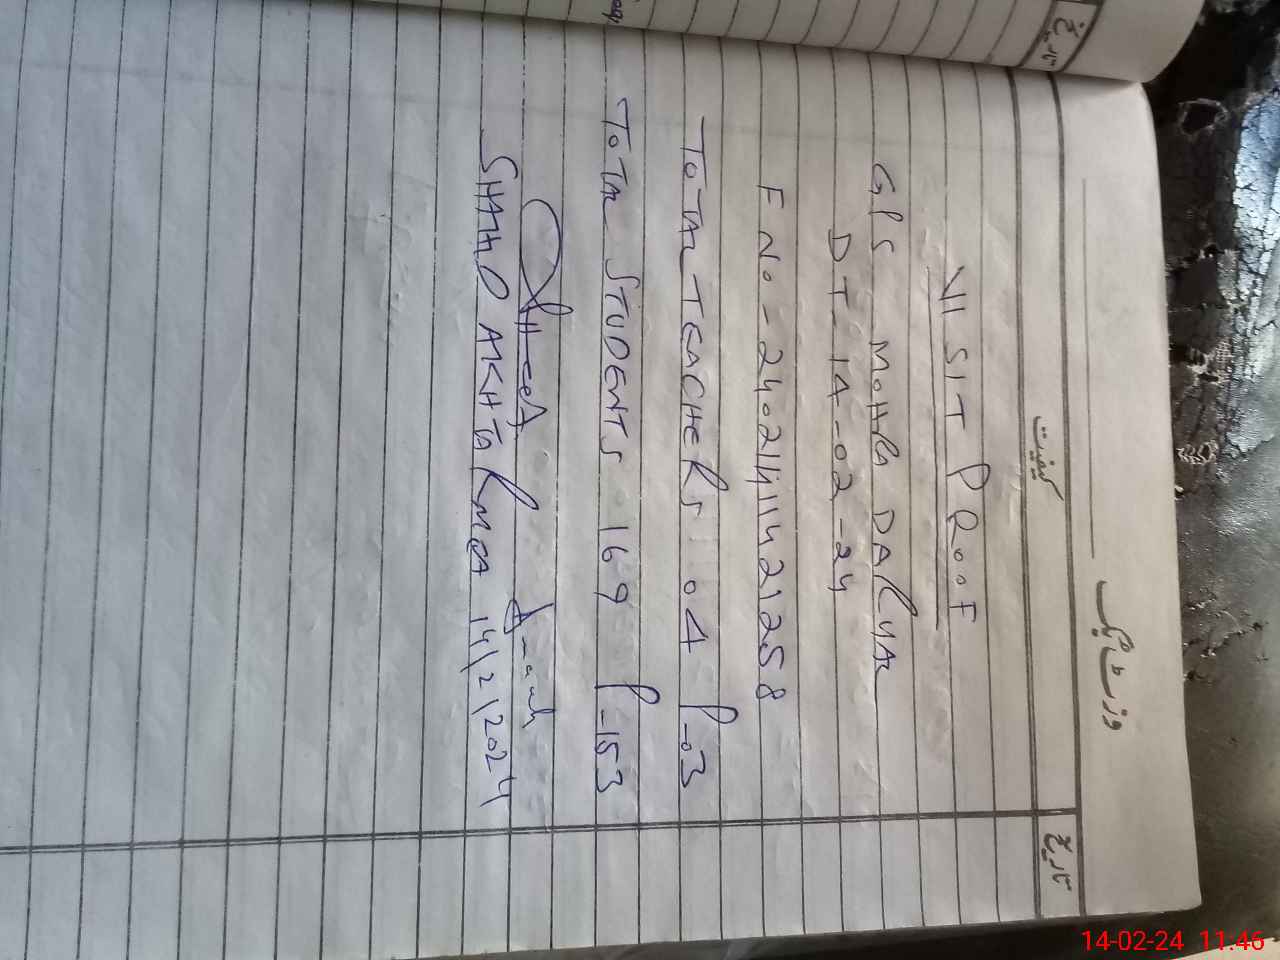 وزٹ بک
کیفیت
تاریخ
تاریخ
VISIT PROOF
GPS MOHRA DARYAL
DT-14-02-24
F No - 24021411421258
TOTAL TEACHERS 04 P-03
TOTAL STUDENTS 169 P-153
SHAHID AKHTAR MEA 14/2/2024
14-02-24 11:46